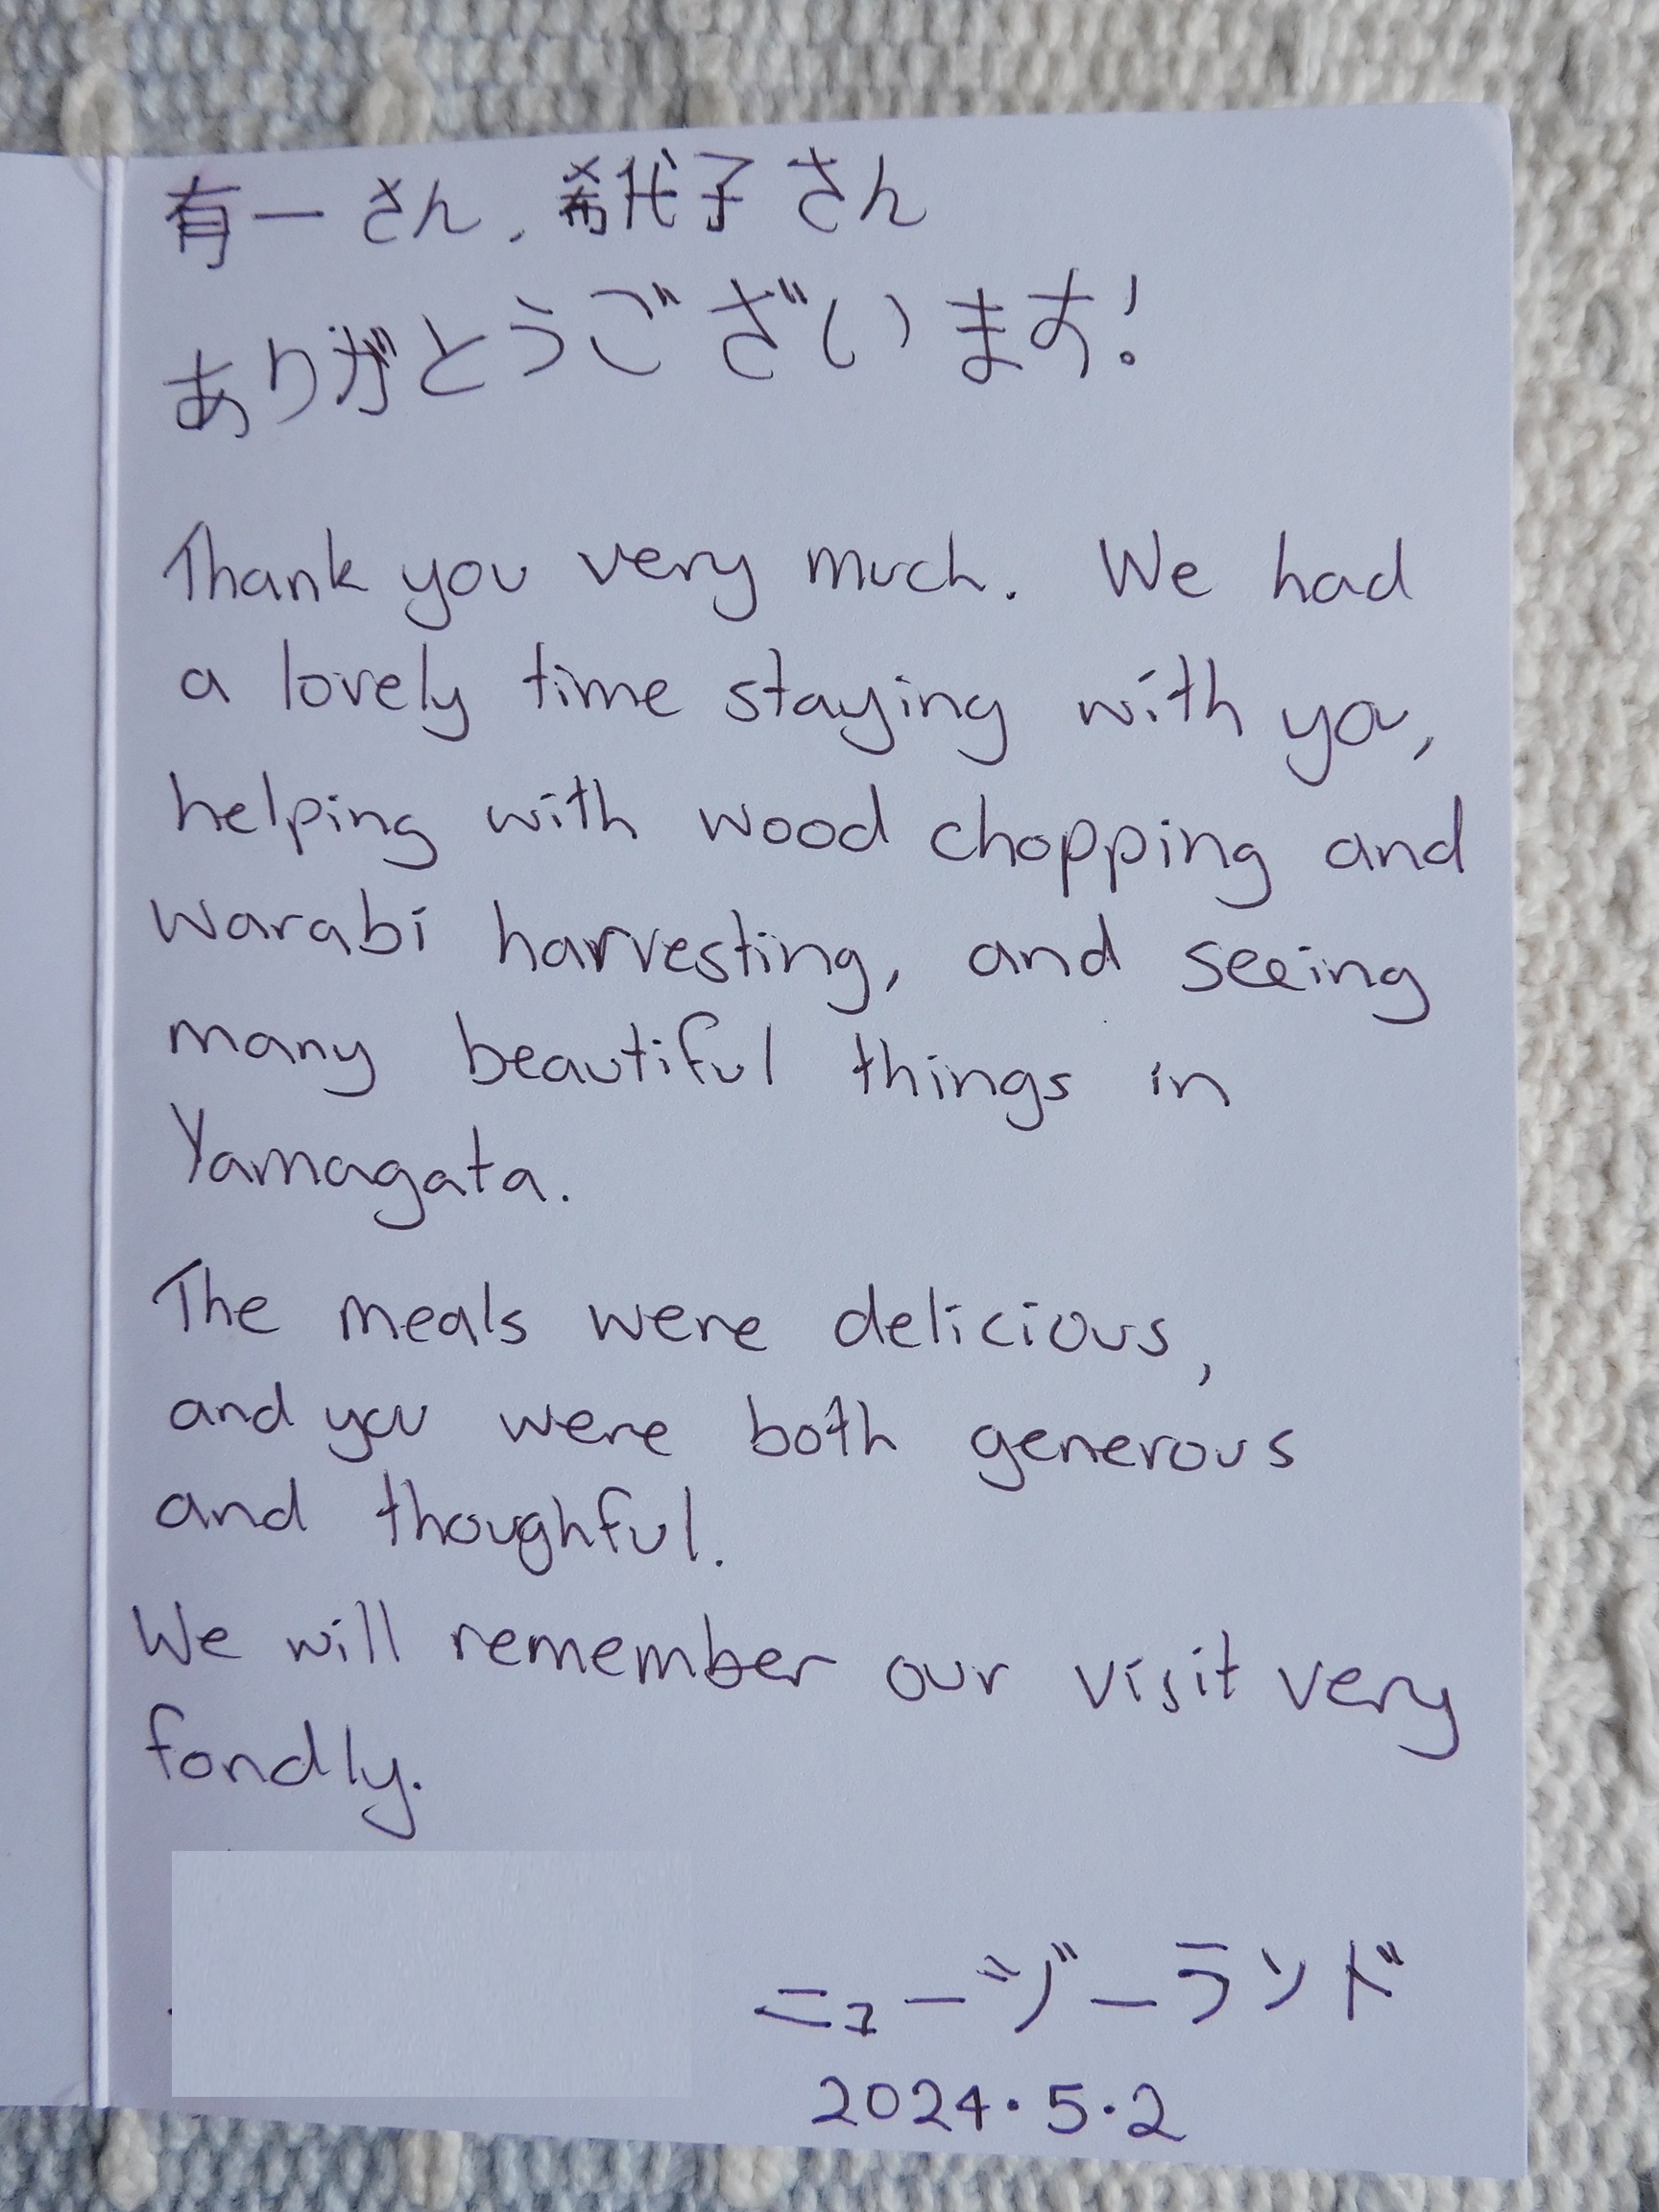 有一さん、希代子さん
ありがとうございます!
Thank you very much. We had
a lovely time staying with you,
helping with wood chopping and
warabi harvesting, and seeing
many beautiful things in
Yamagata.
The meals were delicious,
and you were both generous
and thoughtful.
We will remember our visit very
fondly.
ニュージーランド
2024・5・2